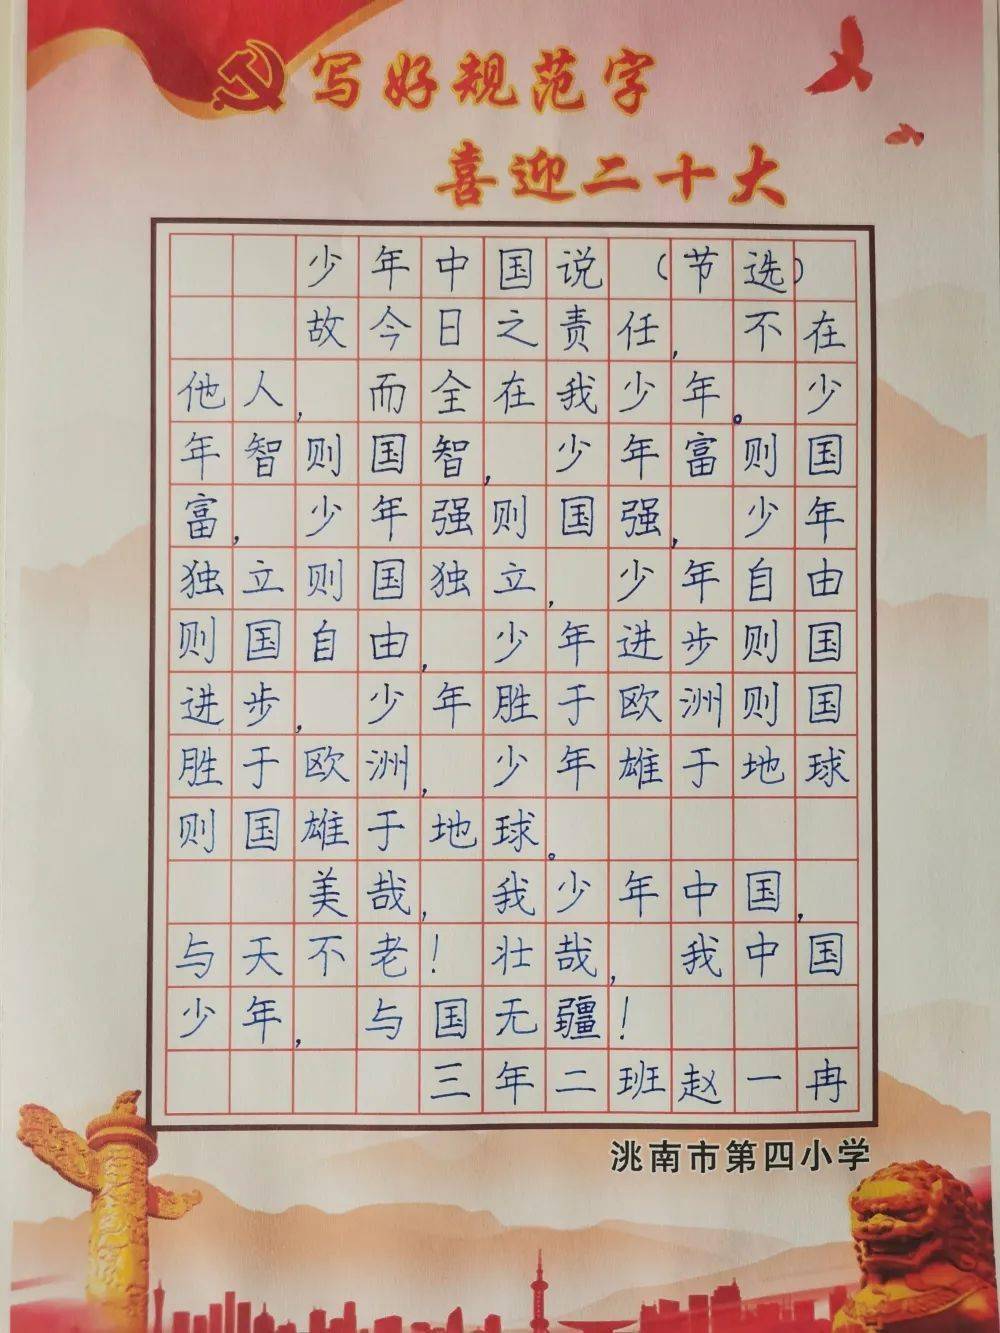 写好规范字
喜迎二十大
少年中国说（节选）
故今日之责任，不在
他人，而全在我少年。少
年智则国智，少年富则国
富，少年强则国强，少年
独立则国独立，少年自由
则国自由，少年进步则国
进步，少年胜于欧洲则国
胜于欧洲，少年雄于地球
则国雄于地球。
美哉，我少年中国，
与天不老！壮哉，我中国
少年，与国无疆！
三年二班赵一冉
洮南市第四小学